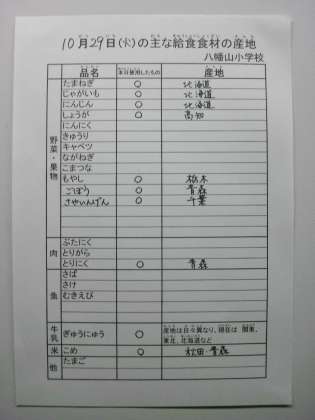 10月29日(火)の主な給食食材の産地
八幡山小学校
品名 本日使用したもの 産地
野菜・果物
たまねぎ ○ 北海道
じゃがいも ○ 北海道
にんじん ○ 北海道
しょうが ○ 高知
にんにく
きゅうり
キャベツ
ながねぎ
こまつな
もやし ○ 栃木
ごぼう ○ 青森
さやいんげん ○ 千葉
肉
ぶたにく
とりがら
とりにく ○ 青森
魚
さば
さけ
むきえび
牛乳 ぎゅうにゅう ○ 産地は日々異なり、現在は 関東、
東北、北海道など
米 こめ ○ 秋田・青森
他 たまご